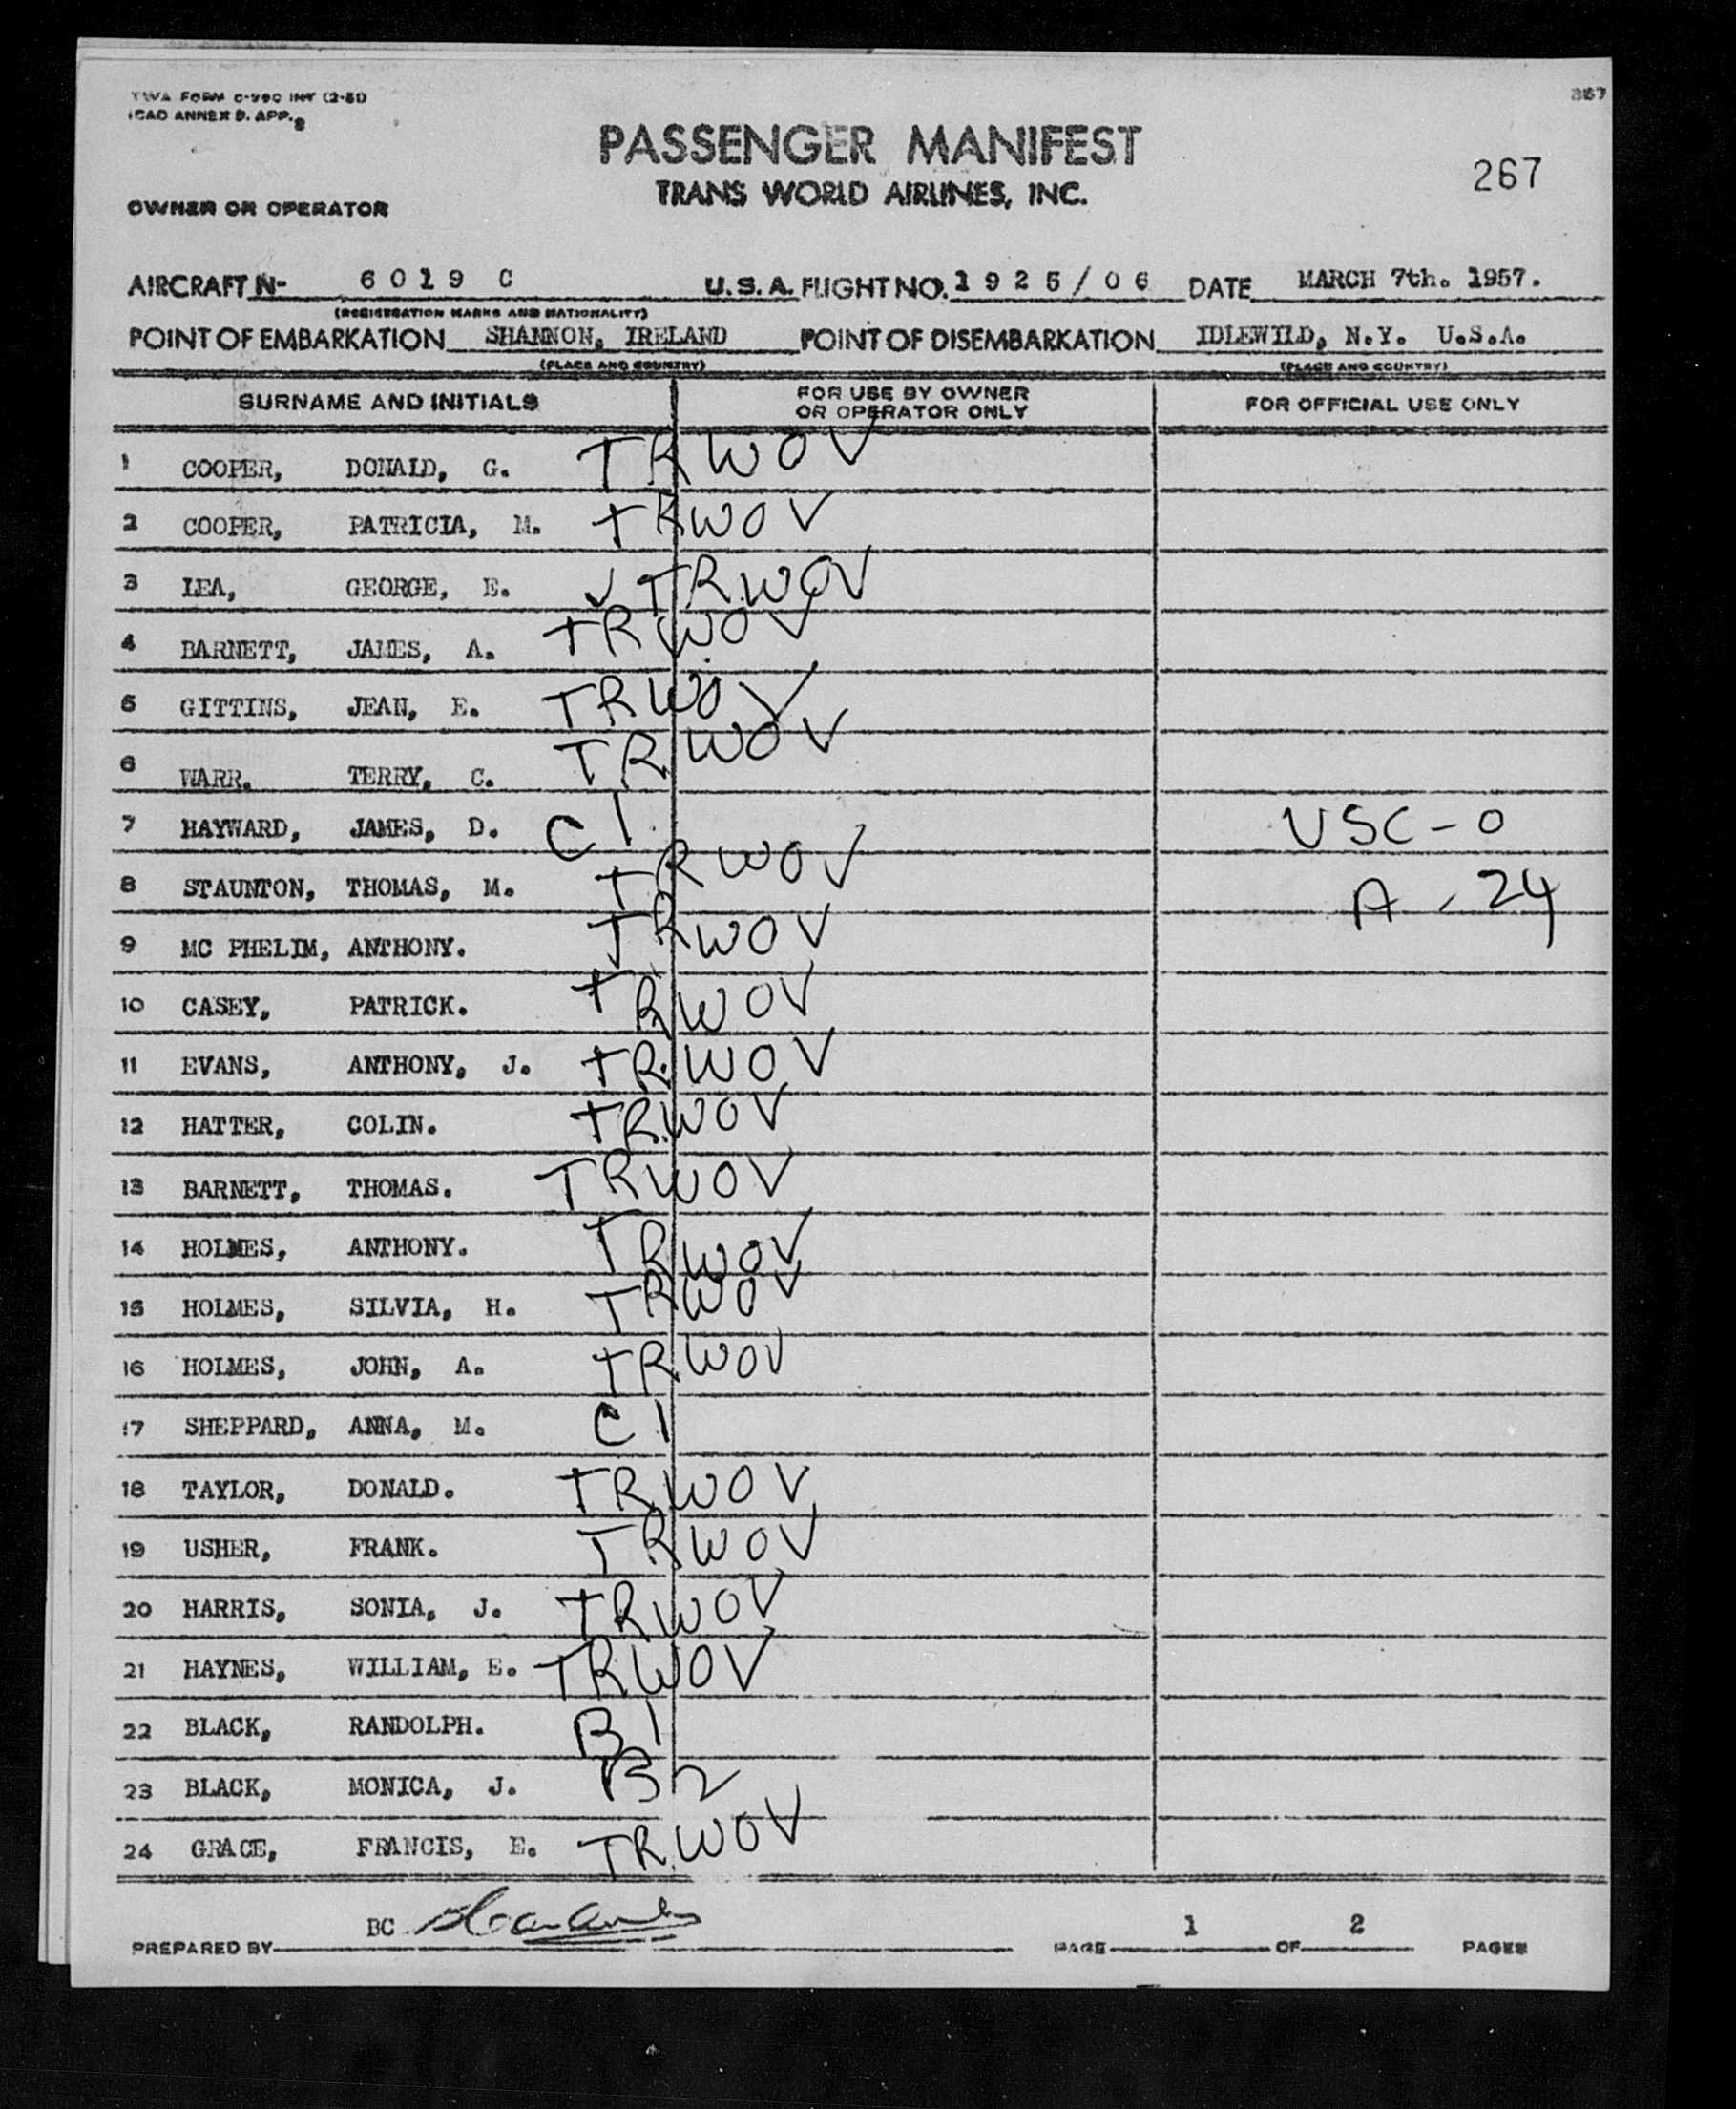 TWA FORM C-990 INT (2-51)
ICAO ANNEX 9. APP.
367
PASSENGER MANIFEST
267
TRANS WORLD AIRLINES, INC.
OWNER OR OPERATOR
AIRCRAFT N- 6019 C U.S.A. FLIGHT NO. 1925/06 DATE MARCH 7th. 1957.
(REGISTRATION MARKS AND NATIONALITY)
POINT OF EMBARKATION SHANNON, IRELAND POINT OF DISEMBARKATION IDLEWILD, N.Y. U.S.A.
(PLACE AND COUNTRY) (PLACE AND COUNTRY)
SURNAME AND INITIALS FOR USE BY OWNER OR OPERATOR ONLY FOR OFFICIAL USE ONLY
1 COOPER, DONALD, G. TRWOV
2 COOPER, PATRICIA, M. TRWOV
3 LEA, GEORGE, E. ✓ TRWOV
4 BARNETT, JAMES, A. TRWOV
5 GITTINS, JEAN, E. TRWOV
6 WARR. TERRY, C. TRWOV
7 HAYWARD, JAMES, D. C1 USC-0
8 STAUNTON, THOMAS, M. TRWOV A-24
9 MC PHELIM, ANTHONY. TRWOV
10 CASEY, PATRICK. TRWOV
11 EVANS, ANTHONY, J. TRWOV
12 HATTER, COLIN. TRWOV
13 BARNETT, THOMAS. TRWOV
14 HOLMES, ANTHONY. TRWOV
15 HOLMES, SILVIA, H. TRWOV
16 HOLMES, JOHN, A. TRWOV
17 SHEPPARD, ANNA, M. C1
18 TAYLOR, DONALD. TRWOV
19 USHER, FRANK. TRWOV
20 HARRIS, SONIA, J. TRWOV
21 HAYNES, WILLIAM, E. TRWOV
22 BLACK, RANDOLPH. B1
23 BLACK, MONICA, J. B2
24 GRACE, FRANCIS, E. TRWOV
PREPARED BY BC PAGE 1 OF 2 PAGES